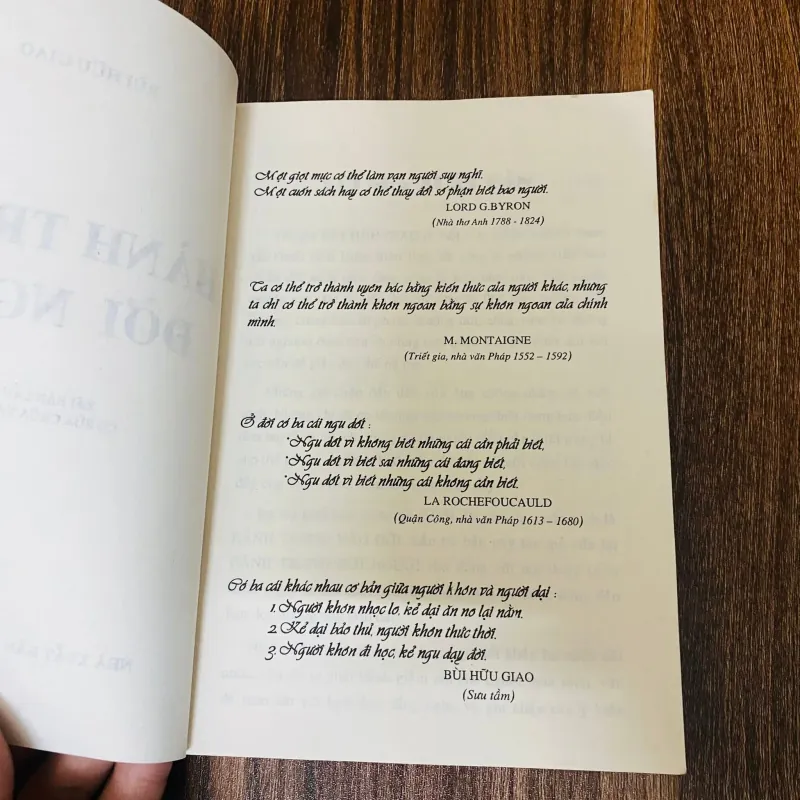 Một giọt mực có thể làm vạn người suy nghĩ.
Một cuốn sách hay có thể thay đổi số phận biết bao người.
LORD G.BYRON
(Nhà thơ Anh 1788 - 1824)
Ta có thể trở thành uyên bác bằng kiến thức của người khác, nhưng
ta chỉ có thể trở thành khôn ngoan bằng sự khôn ngoan của chính
mình.
M. MONTAIGNE
(Triết gia, nhà văn Pháp 1552 – 1592)
Ở đời có ba cái ngu dốt :
*Ngu dốt vì không biết những cái cần phải biết,
*Ngu dốt vì biết sai những cái đang biết,
*Ngu dốt vì biết những cái không cần biết.
LA ROCHEFOUCAULD
(Quận Công, nhà văn Pháp 1613 – 1680)
Có ba cái khác nhau cơ bản giữa người khôn và người dại :
1. Người khôn nhọc lo, kẻ dại ăn no lại nằm.
2. Kẻ dại bảo thủ, người khôn thức thời.
3. Người khôn đi học, kẻ ngu dạy đời.
BÙI HỮU GIAO
(Sưu tầm)